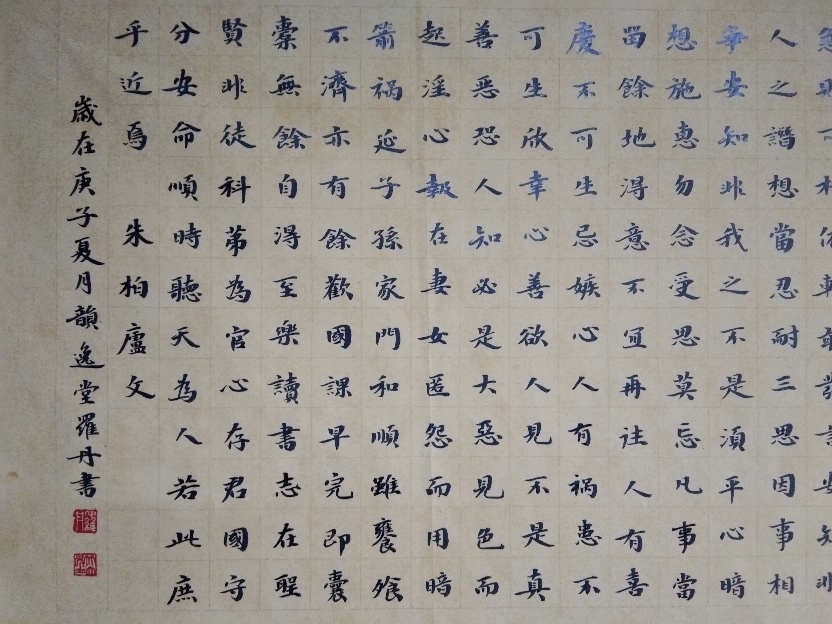 人之譖想當忍耐三思因事相
爭安知非我之不是須平心暗
想施惠勿念受恩莫忘凡事當
留餘地得意不宜再往人有喜
慶不可生忌嫉心人有禍患不
可生欣幸心善欲人見不是真
善惡恐人知必是大惡見色而
起淫心報在妻女匿怨而用暗
箭禍延子孫家門和順雖饔飧
不濟亦有餘歡國課早完即囊
橐無餘自得至樂讀書志在聖
賢非徒科第為官心存君國守
分安命順時聽天為人若此庶
乎近焉 朱柏廬文
歲在庚子夏月韻逸堂羅丹書